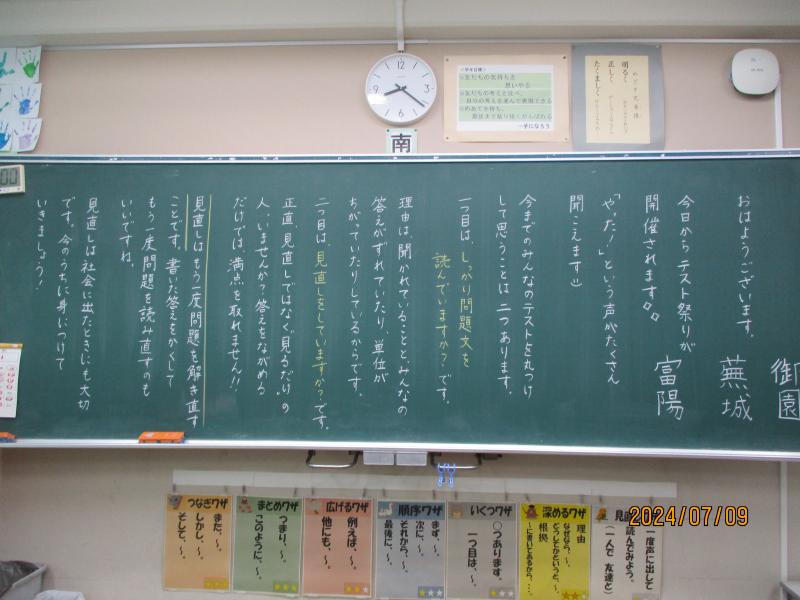 おはようございます。
今日からテスト祭りが
開催されます
「やった！」という声がたくさん
聞こえます
今までのみんなのテストを丸つけ
して思うことは二つあります。
一つ目は、しっかり問題文を
読んでいますか？です。
理由は、聞かれていることと、みんなの
答えがずれていたり、単位が
ちがっていたりしているからです。
二つ目は、見直しをしていますか？です。
正直、見直しではなく"見るだけ"の
人、いませんか？答えをながめる
だけでは、満点を取れません!!
見直しはもう一度問題を解き直す
ことです。書いた答えをかくして
もう一度問題を読み直すのも
いいですね。
見直しは社会に出たときにも大切
です。今のうちに身につけて
いきましょう！
御園
蕪城
富陽
南
<学年目標>
友だちの気持ちを
思いやる
友だちの考えと比べ、
自分の考えを選んで表現できる
めあてを持ち、
最後まで粘り強くがんばれる
一手になろう
めざす児童像
明るく
正しく
たくましく
見直
一度声に出して
読んでみよう。
(一人で 友達と)
深めるワザ
理由
なぜなら、～。
どうしてかというと、～。
根拠
～に書いてあるから、～。
いくつワザ
○つあります。
一つ目は、～。
順序ワザ
まず、～。
次に、～。
それから、～。
最後に、～。
広げるワザ
例えば、～。
他にも、～。
まとめワザ
つまり、～。
このように、～。
つなぎワザ
また、～。
しかし、～。
そして、～。
2024/07/09